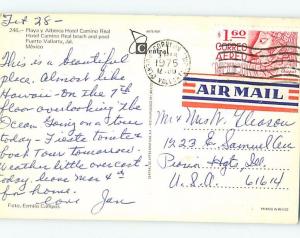 Feb 28-
246.- Playa y Alberca Hotel Camino Real
Hotel Camino Real beach and pool
Puerto Vallarta, Jal.
México
This is a beautiful
place. Almost like
Hawaii - On the 7th
floor overlooking the
Ocean. Going on a tour
today - Fiesta tonite &
boat Tour tomorrow.
Weather little overcast
today, leave Mar 4th
for home.
Love Jan
Foto, Ernesto
1975
1.60
CORREO
AEREO
AIR MAIL
Mr & Mrs W. Gleason
1923 E
Peoria Hgts, Ill.
U.S.A. 61614
PRINTED IN MEXICO